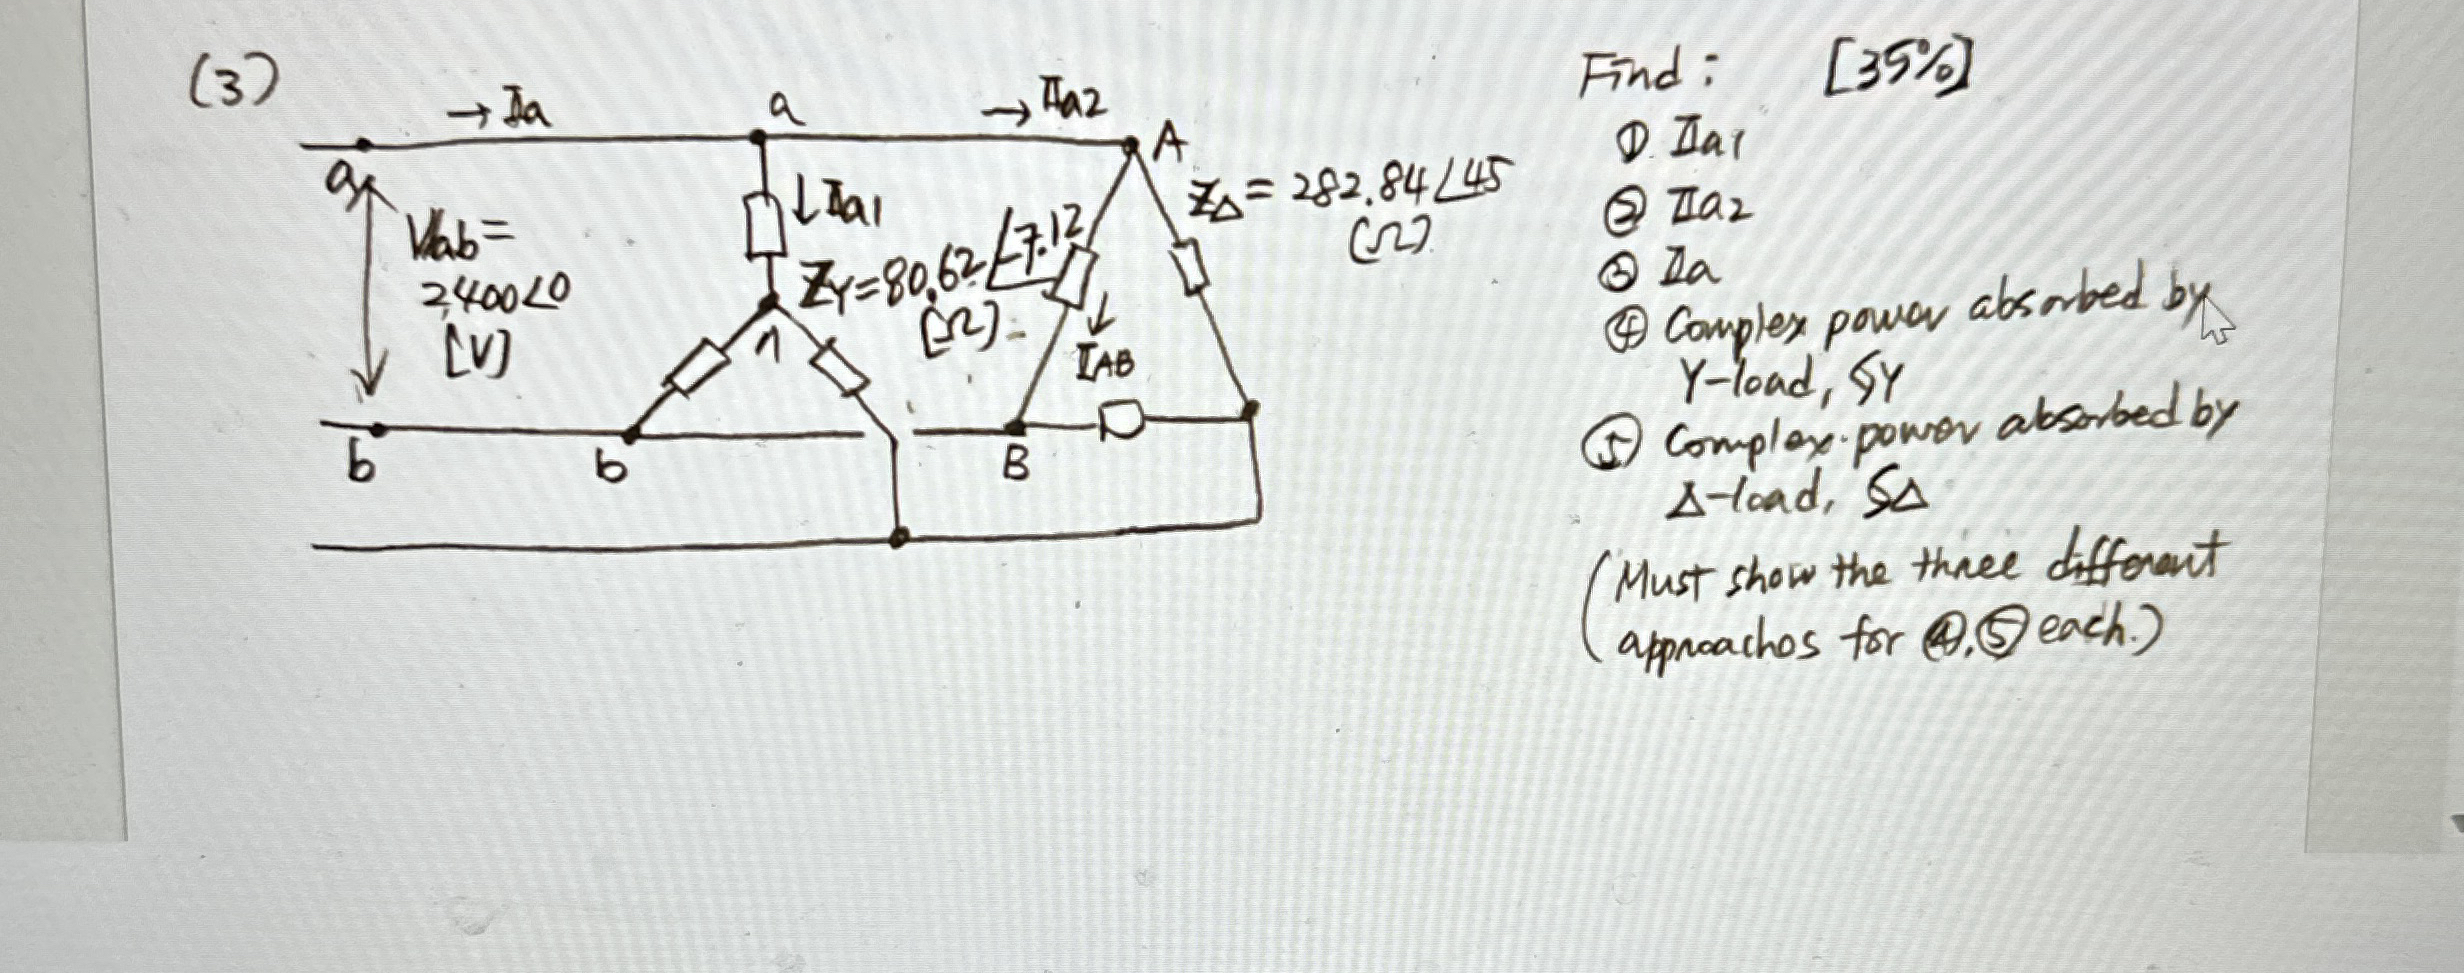 (3)
→ Ia
a
→ Ia2
A
a
Vab =
2,400∠0
[V]
↓ Ia1
ZY = 80.62∠-7.12
[Ω]
Z∆ = 282.84∠45
(Ω)
n
↓
IAB
b
b
B
Find : [35%]
① Ia1
② Ia2
③ Ia
④ Complex power absorbed by
Y-load, SY
⑤ Complex power absorbed by
∆-load, S∆
(Must show the three different
approachos for ④,⑤ each.)